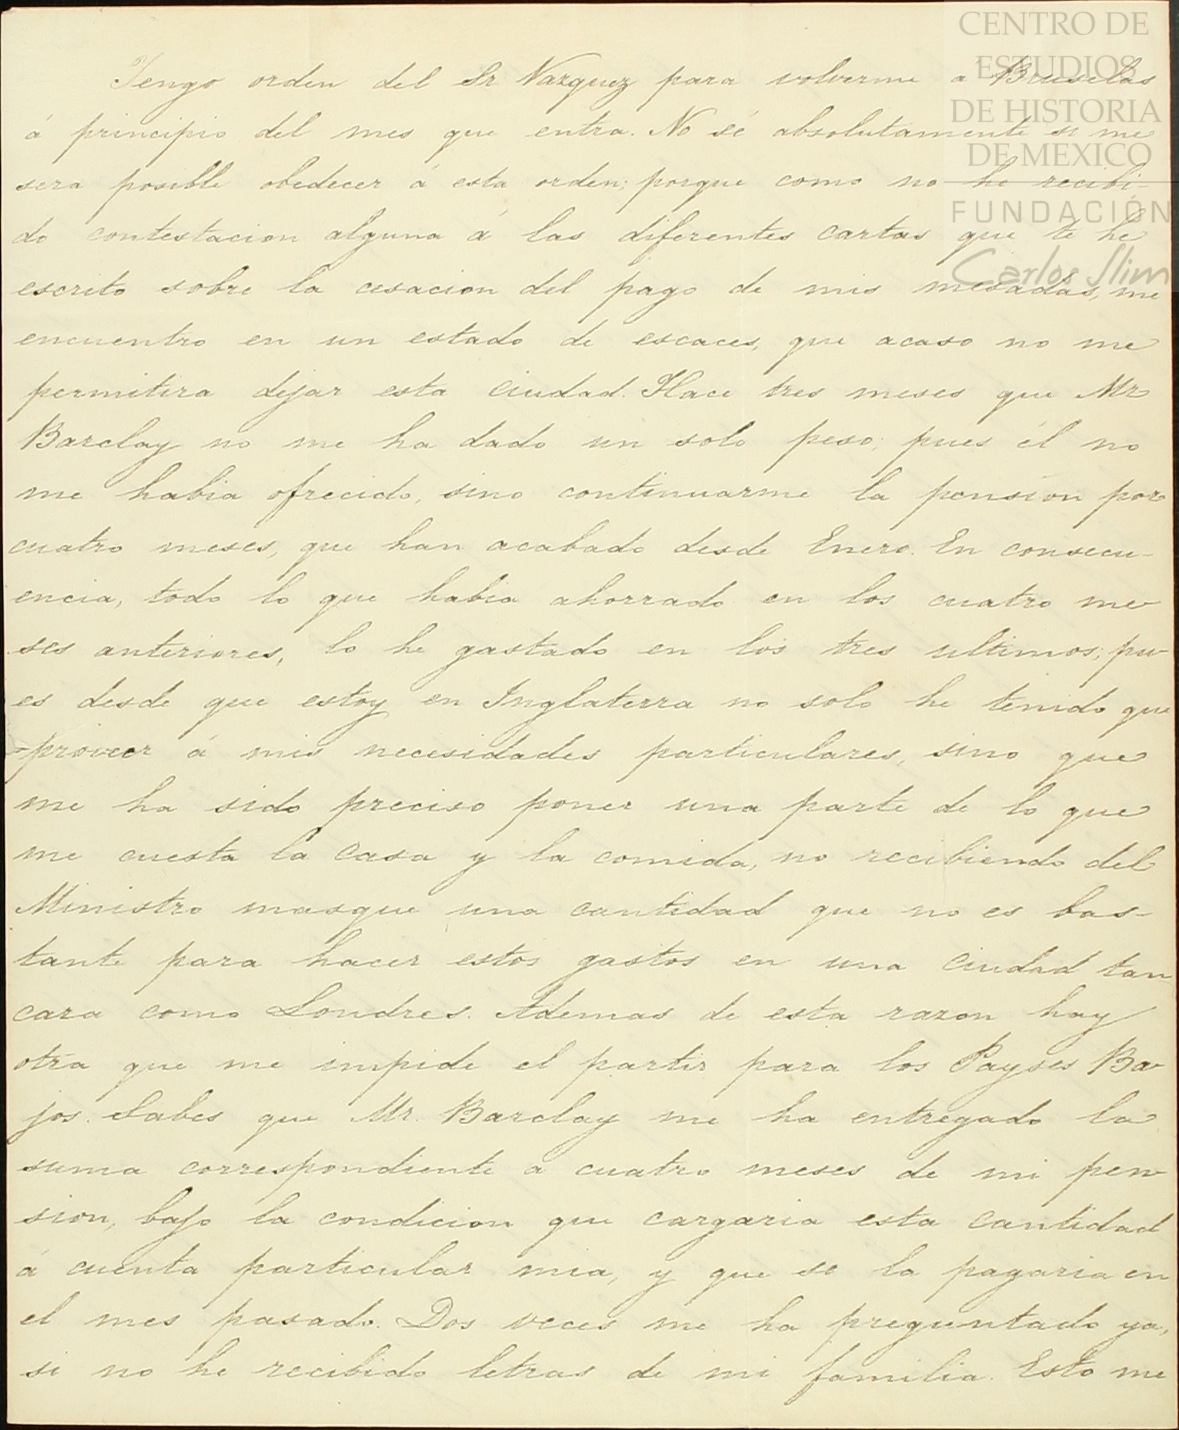 CENTRO DE
ESTUDIOS
DE HISTORIA
DE MEXICO
FUNDACIÓN
Carlos Slim
Tengo orden del Sr Vazquez para volverme a Bruselas
á principio del mes que entra. No sé absolutamente si me
sera posible obedecer á esta orden; porque como no he recibi-
do contestacion alguna á las diferentes cartas que te he
escrito sobre la cesacion del pago de mis mesadas, me
encuentro en un estado de escaces, que acaso no me
permitira dejar esta ciudad. Hace tres meses que Mr
Barclay no me ha dado un solo peso; pues él no
me habia ofrecido, sino continuarme la pension por
cuatro meses, que han acabado desde Enero. En consecu-
encia, todo lo que habia ahorrado en los cuatro me-
ses anteriores, lo he gastado en los tres ultimos; pu-
es desde que estoy en Inglaterra no solo he tenido que
proveer á mis necesidades particulares, sino que
me ha sido preciso poner una parte de lo que
me cuesta la casa y la comida, no recibiendo del
Ministro masque una cantidad que no es bas-
tante para hacer estos gastos en una ciudad tan
cara como Londres. Ademas de esta razon hay
otra que me impide el partir para los Payses Ba-
jos. Sabes que Mr. Barclay me ha entregado la
suma correspondiente a cuatro meses de mi pen-
sion, bajo la condicion que cargaria esta cantidad
á cuenta particular mia, y que se la pagaria en
el mes pasado. Dos veces me ha preguntado ya,
si no he recibido letras de mi familia. Esto me